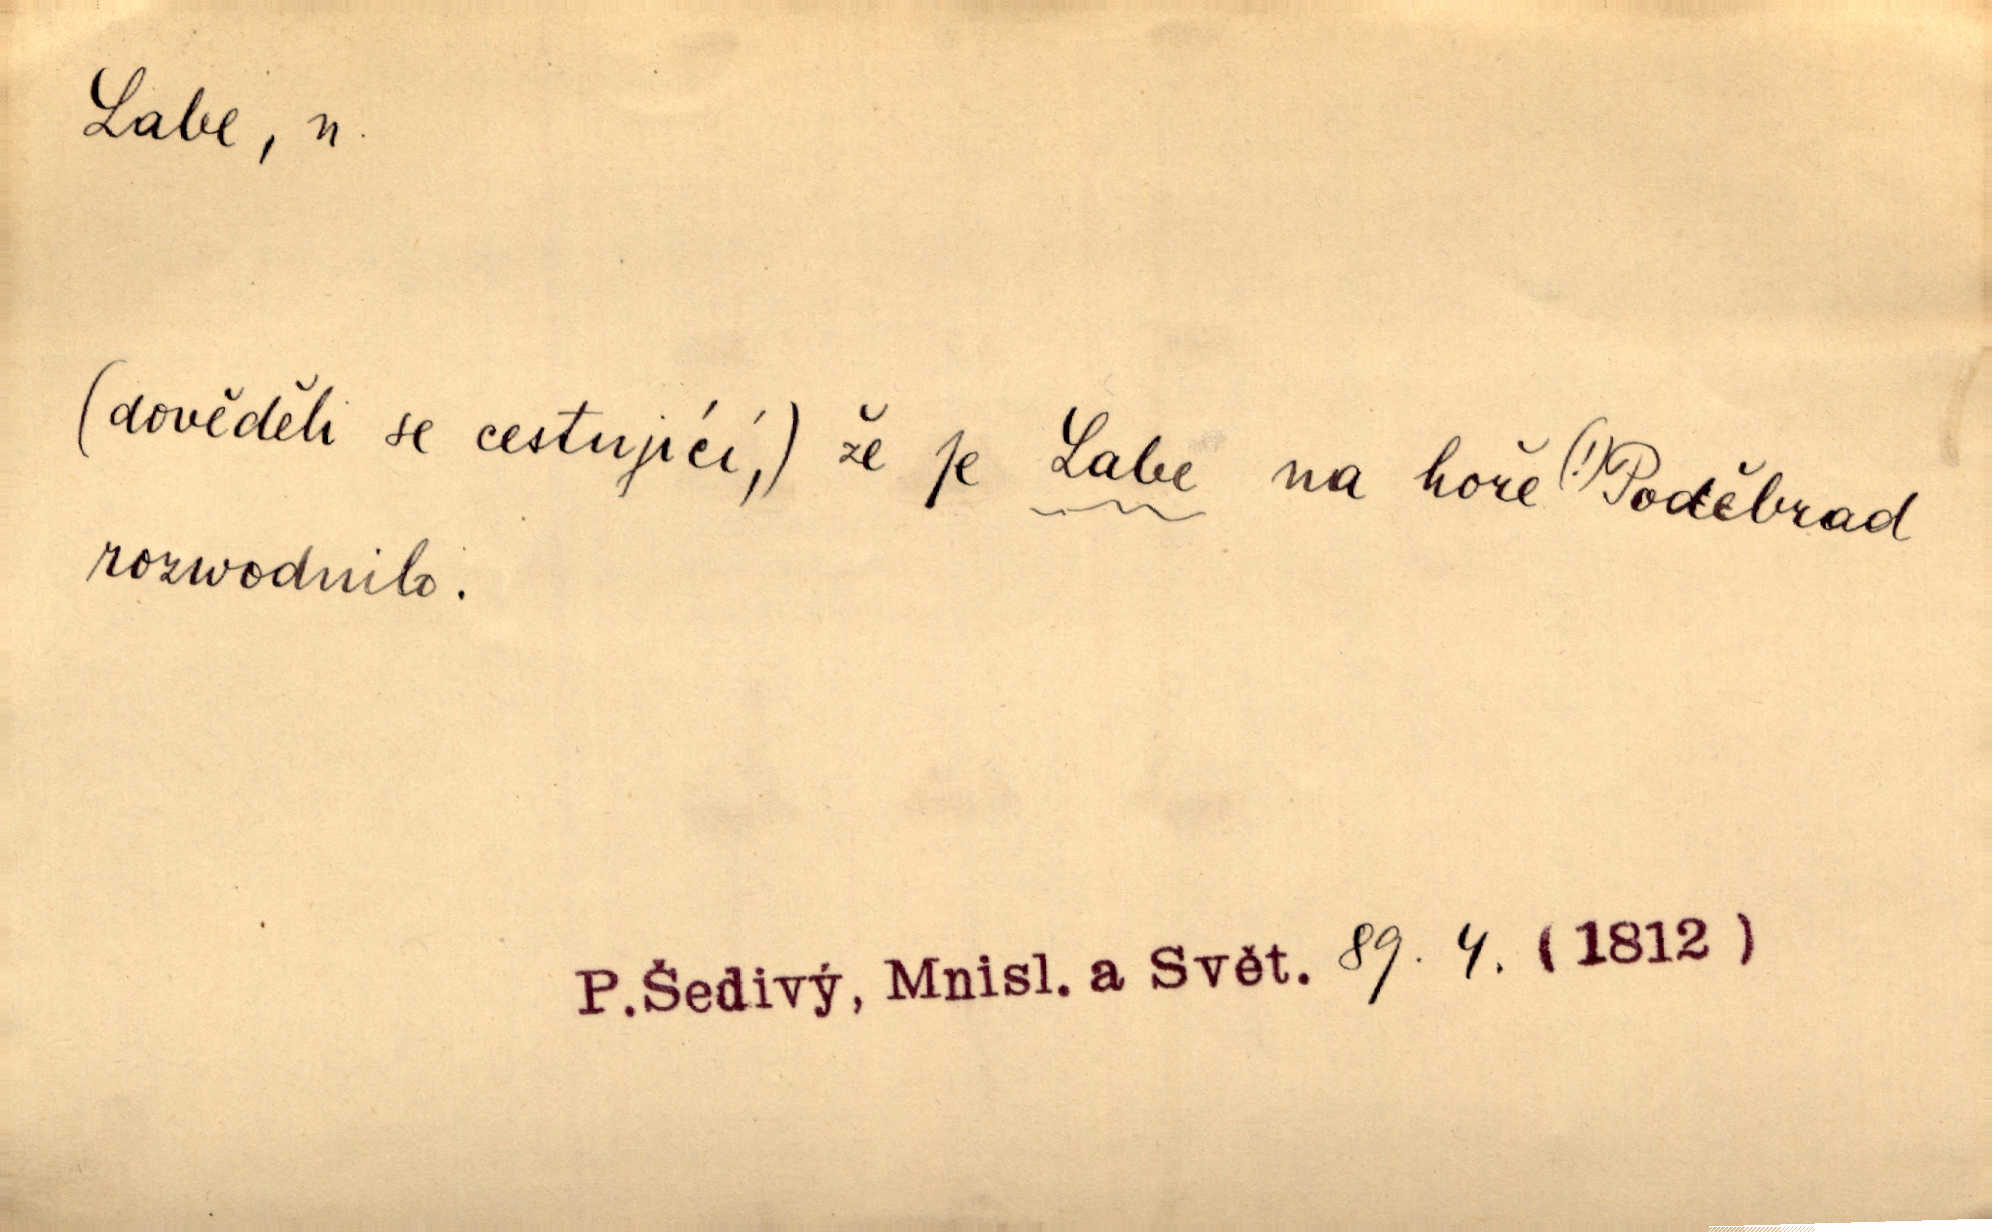 Labe, n.
(dověděli se cestující,) že je Labe na hoře (!) Poděbrad
rozwodnilo.
P. Šedivý, Mnisl. a Svět. 89. 4. (1812)